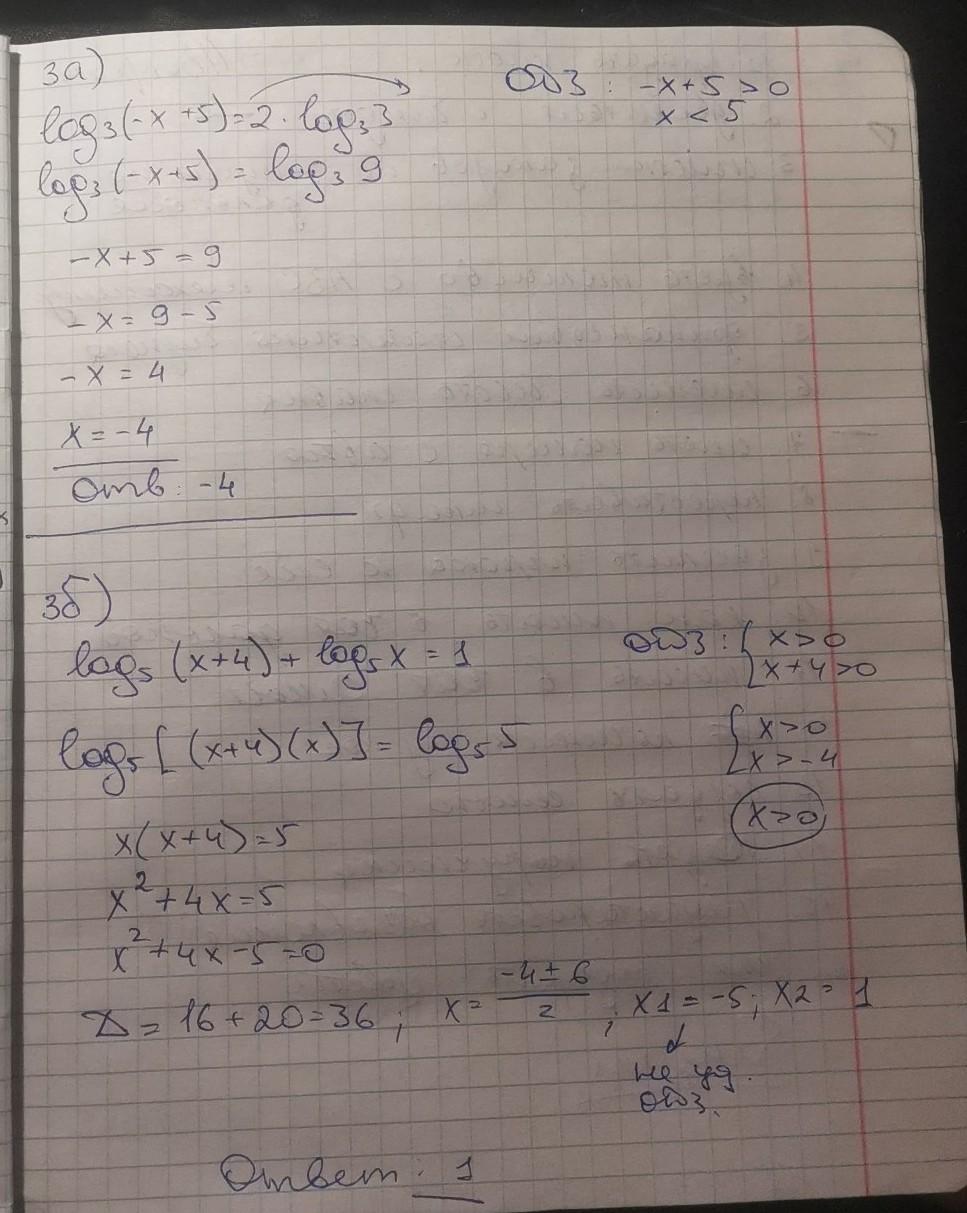 3а)
log₃(-x+5)=2·log₃3
ОДЗ: -x+5>0
x<5
log₃(-x+5)=log₃9
-x+5=9
-x=9-5
-x=4
x=-4
Отв: -4
3б)
log₅(x+4)+log₅x=1
ОДЗ: { x>0
x+4>0
log₅[(x+4)(x)]=log₅5
{ x>0
x>-4
x>0
x(x+4)=5
x²+4x=5
x²+4x-5=0
D=16+20=36; x=(-4±6)/2; x1=-5; x2=1
не уд.
ОДЗ.
Ответ: 1